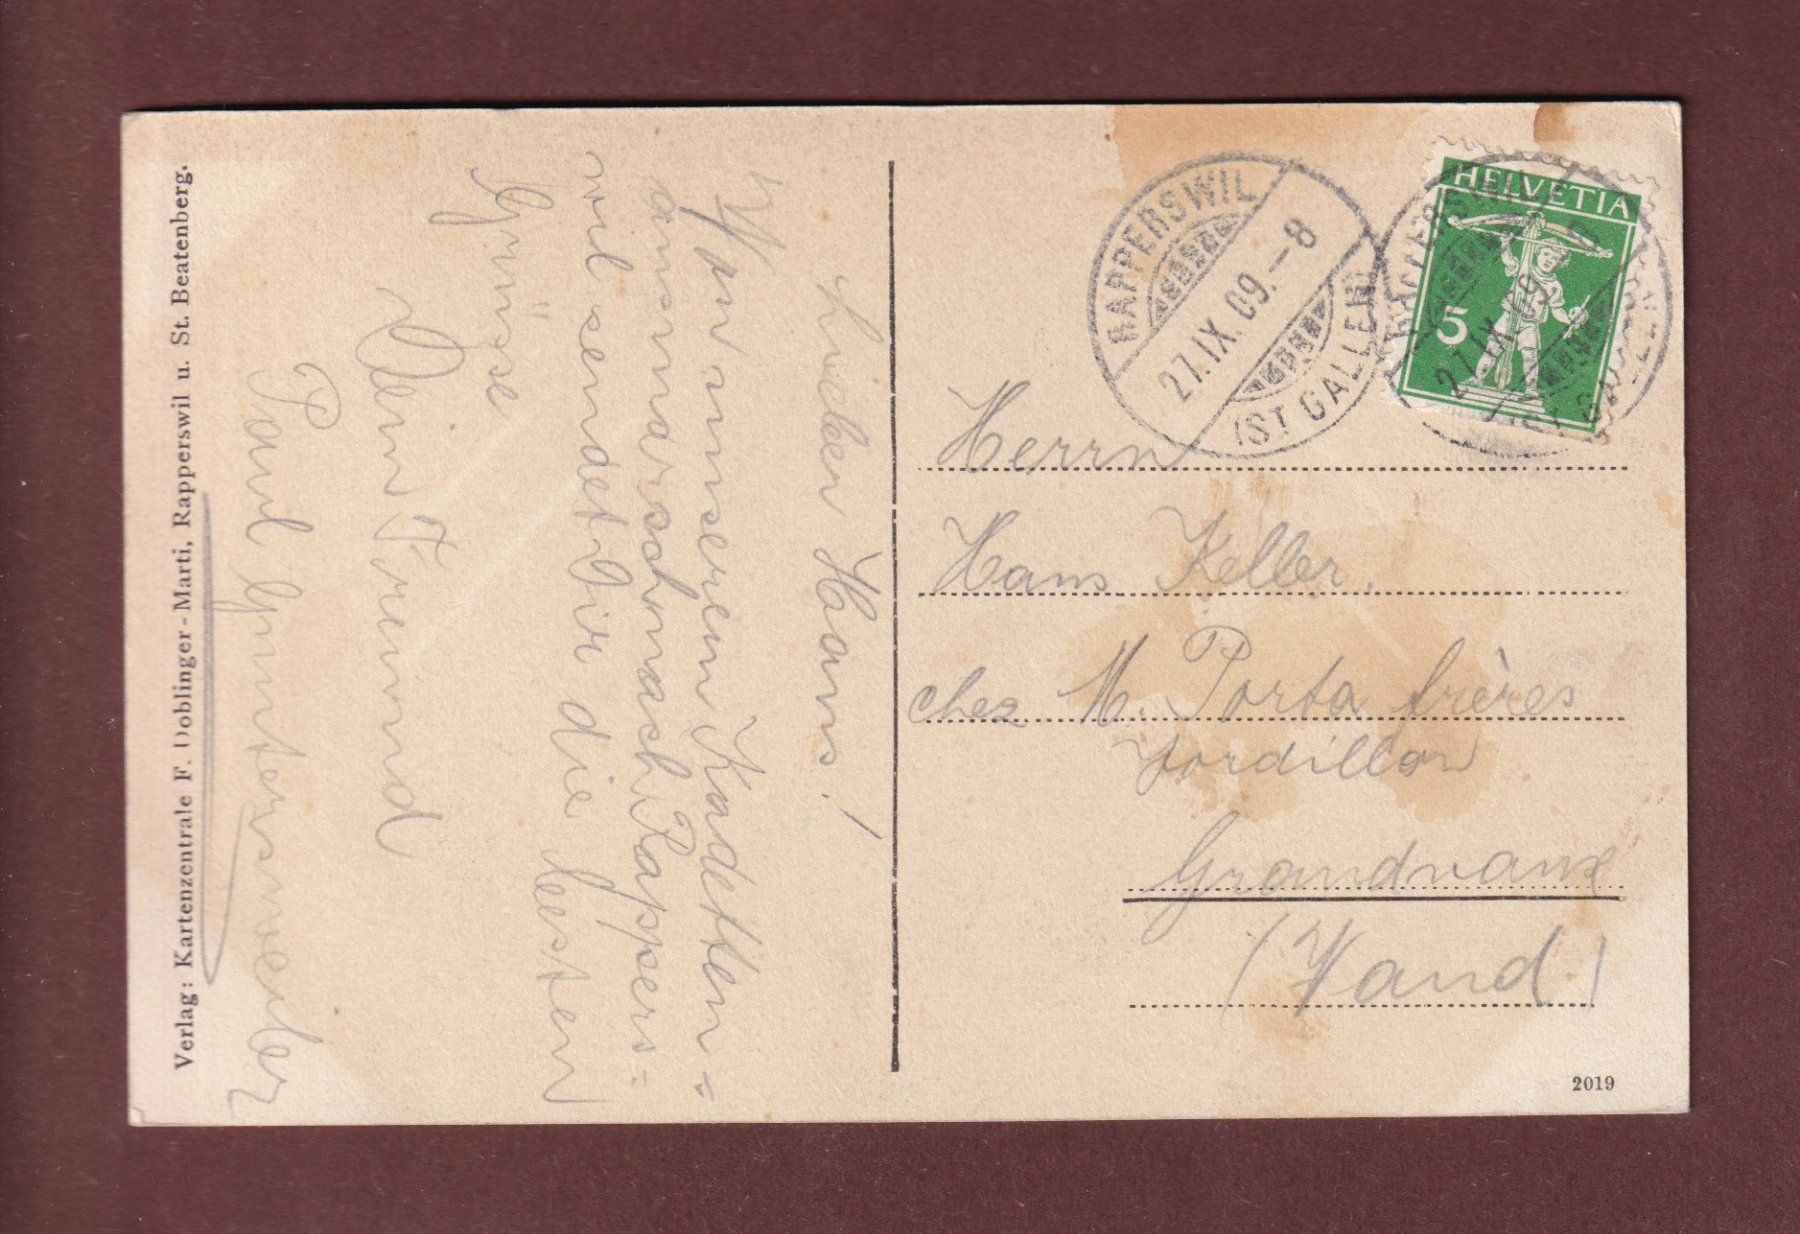 Verlag: Kartenzentrale F. Doblinger-Marti, Rapperswil u. St. Beatenberg.
Lieber Hans!
Von unserem Kadetten=
ausmarsch nach Rappers=
wil sendet Dir die besten
Grüsse
Dein Freund
Paul Guntersweiler
RAPPERSWIL
27.IX.09.-8
(ST. GALLEN)
HELVETIA
5
RAPPERSWIL
27.IX.09
(ST. GALLEN)
Herrn
Hans Keller.
chez M. Porta frères
Grandvaux
(Vaud)
2019